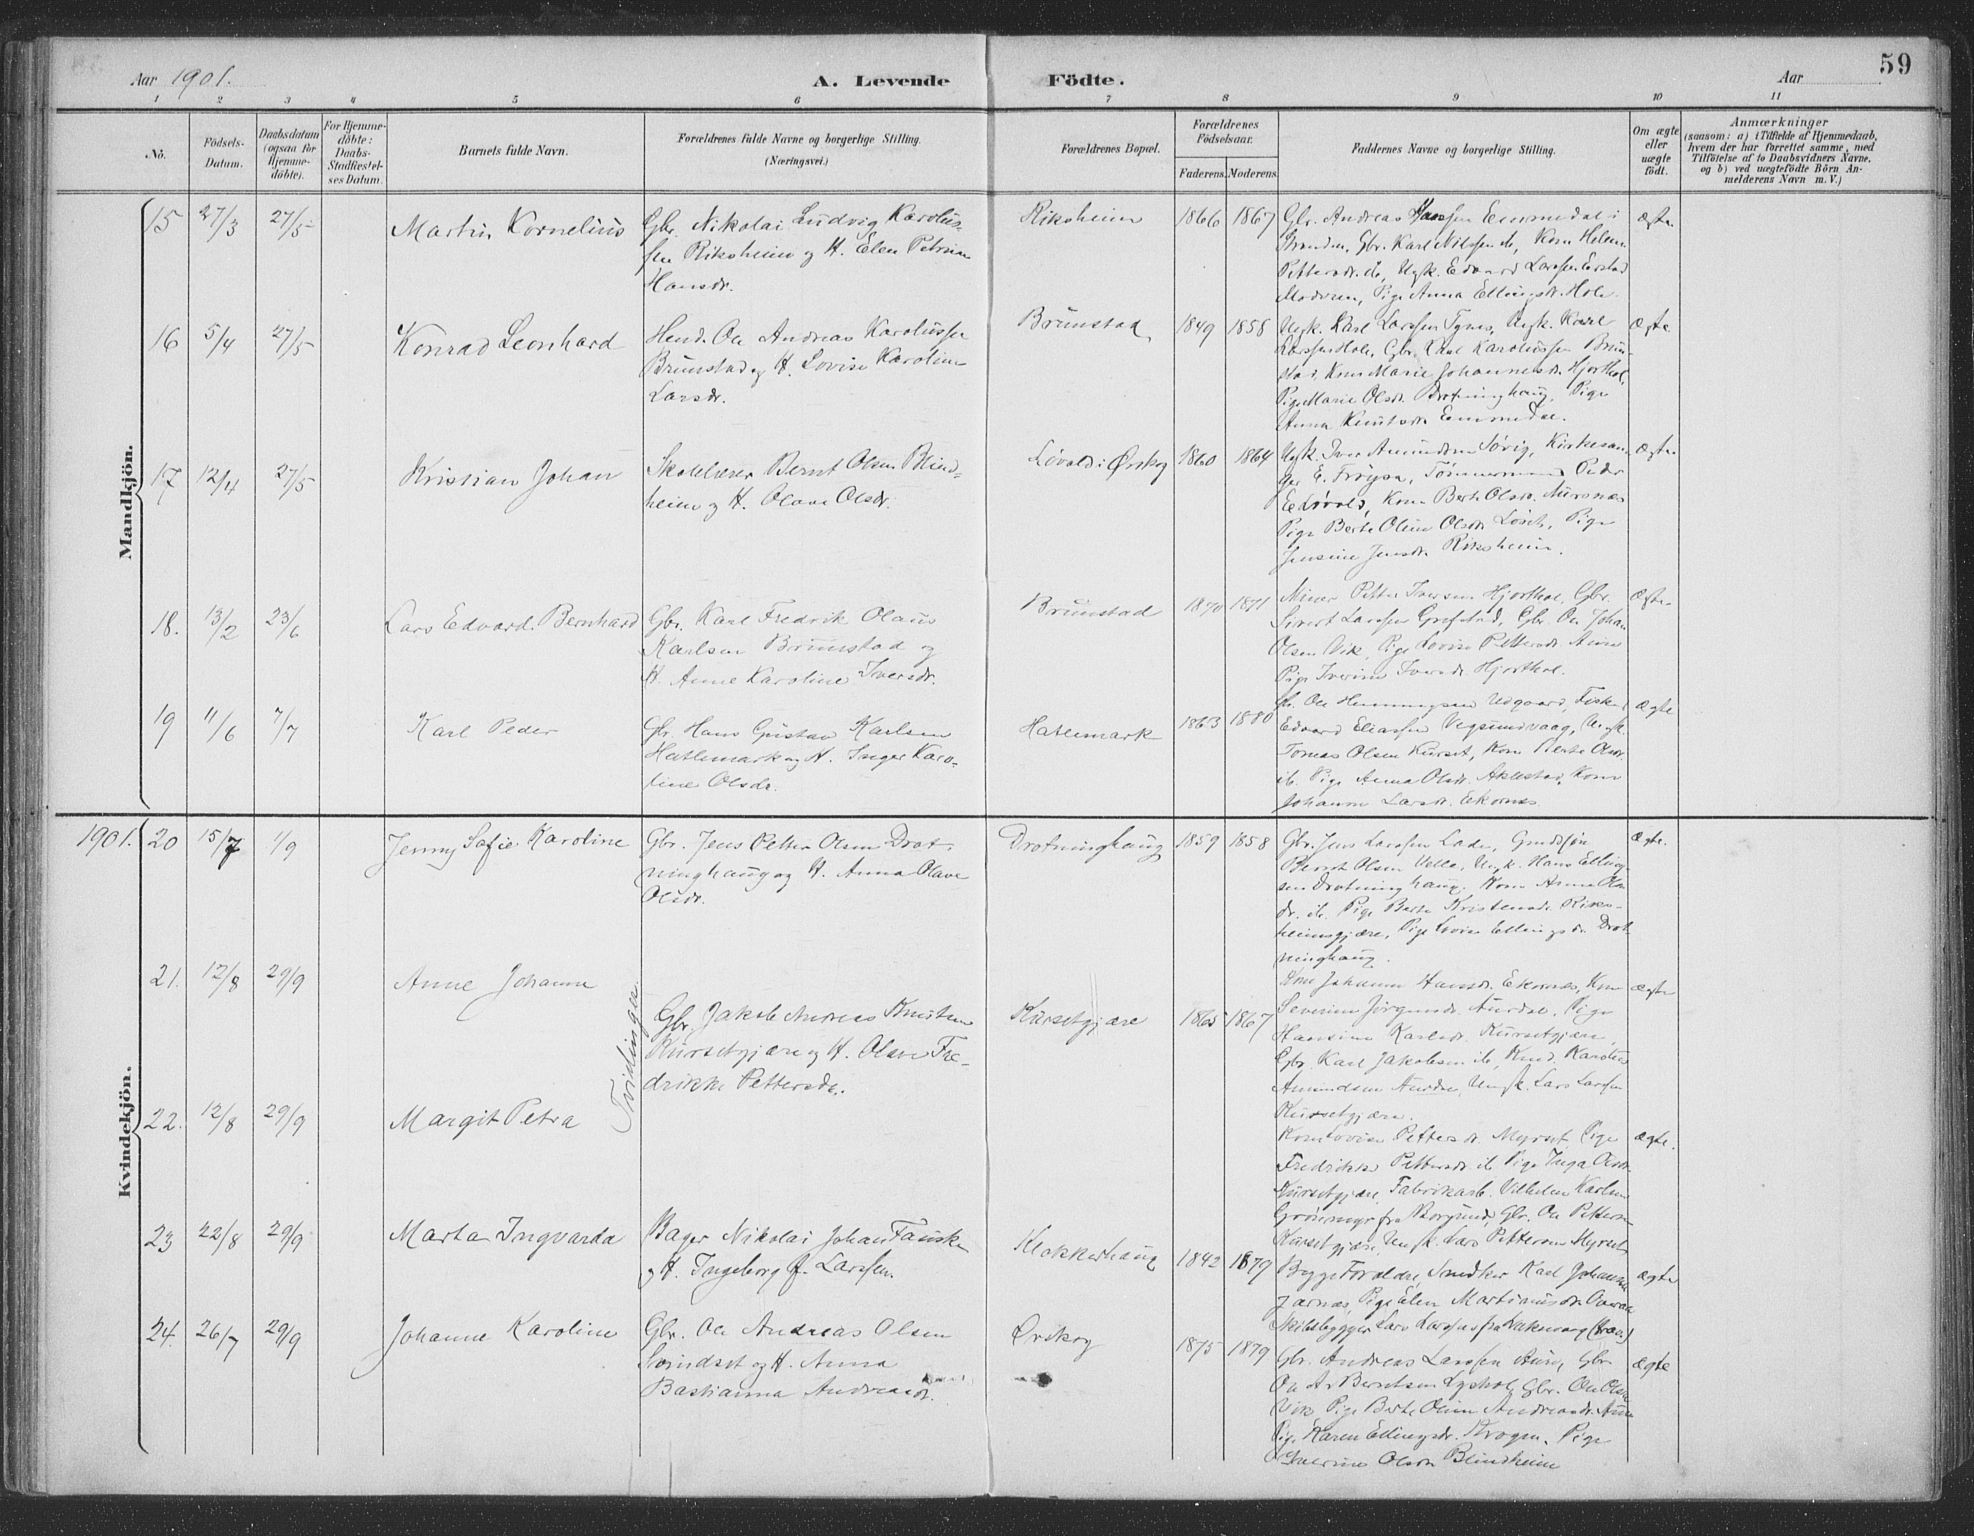 59
Aar 1901.
A. Levende Födte.
Aar
1 2 3 4 5 6 7 8 9 10 11
No.
Födsels-
Datum.
Daabsdatum
(ogsaa for
Hjemme-
döbte).
For Hjemme-
döbte:
Daabs-
Stadfæstel-
ses Datum.
Barnets fulde Navn.
Forældrenes fulde Navne og borgerlige Stilling.
(Næringsvei.)
Forældrenes Bopæl.
Forældrenes
Födselsaar.
Faderens.
Moderens.
Faddernes Navne og borgerlige Stilling.
Om ægte
eller
uægte
födt.
Anmærkninger
(saasom: a) i Tilfælde af Hjemmedaab,
hvem der har forrettet samme, med
Tilföielse af to Daabsvidners Navne,
og b) ved uægtefödte Börn An-
melderens Navn m. V.)
Mandkjön.
15 27/3 27/5
Martin Kornelius
Gbr. Nikolai Ludvig Karolius-
sen Riksheim og H. Elen Petrine
Hansdr.
Riksheim
1866 1867
Gbr. Andreas Hanssen Emmedal i
Stranden, Gbr. Karl Nilssen ib, Kone Helene
Pettersdr. ib, Ungk. Edvard Larssen
Moderen, Pige Anna Ellingsdr. Hole.
ægte
16 5/4 27/5
Konrad Leonhard
Hmd. Ole Andreas Karolussen
Brunstad og H. Lovise Karoline
Larsdr.
Brunstad
1849 1858
Ungk. Karl Larssen Tynes, Ungk. Karl
Larssen Hole, Gbr. Karl Karolussen Brun-
stad, Kone Marie Johannesdr. Hjorthol,
Pige Marie Olsdr. Drotninghaug, Pige
Anna Knutsdr. Emmedal.
Ægte
17 12/4 27/5
Kristian Johan
Skolelærer Bernt Olsen Blind-
heim og H. Olave Olsdr.
Løvold i Ørskog
1860 1864
Ungk. Iver Amundsen Søvig, Kirkesan-
ger E. Frøysa, Tømmermand Peder
E. Løvold, Kone Berte Olsdr. Aursnes
Pige Berte Oline Olsdr. Løset, Pige
Jensine Jensdr. Riksheim.
ægte
18. 13/2 23/6
Lars Edvard Bernhard
Gbr. Karl Fredrik Olaus
Karlsen Brunstad og
H. Anne Karoline Iversdr.
Brunstad
1870 1871
Minør Petter Iversen Hjorthol, Gbr.
Sivert Larssen Grefstad, Gbr. Ole Johan
Olsen Vik, Pige Lovise Pettersdr. Aure
Pige Iverine Iversdr. Hjorthol.
ægte
19 11/6 7/7
Karl Peder
Gbr. Hans Gustav Karlsen
Hatlemark og H. Inger Karo-
line Olsdr.
Hatlemark
1863 1880
Gbr. Ole Hemmingsen Udgaard, Fisker
Edvard Eliassen Vegsundvaag, Ungk.
Tomas Olsen Kurset, Kone Berte Olsdr.
ib. Pige Anna Olsdr. Aklestad, Kone
Johanne Larsdr. Ekornes.
ægte
Kvindekjön.
1901. 20 15/7 1/9
Jenny Sofie Karoline
Gbr. Jens Petter Olsen Drot-
ninghaug og H. Anna Olave
Olsdr.
Drotninghaug
1859 1858
Gbr. Jens Larssen Lade,
Bernt Olsen Velle, Ungk. Hans Elling-
sen Drotninghaug. Kone Anne Ols-
dr. ib. Pige Berte Kristensdr. Riks-
heimsgjære, Pige Lovise Ellingsdr. Drot-
ninghaug.
ægte.
21. 12/8 29/9
Anne Johanne
Tvillinger.
Gbr. Jakob Andreas Knutsen
Kursetgjære og H. Olave Fre-
drikke Pettersdr.
Kursetgjære
1865 1867
Kone Johanne Hansdr. Ekornes, Kone
Severine Jørgensdr. Aurdal, Pige
Hansine Karlsdr. Kursetgjære,
Gbr. Karl Jakobsen ib, Hmd. Karolus
Amundsen Aurdal, Ungk. Lars Larssen
Kursetgjære.
ægte
22. 12/8 29/9
Margit Petra
Kone Lovise Pettersdr. Myrset, Pige
Fredrikke Pettersdr. ib Pige Inga Olsdr.
Kursetgjære, Fabrikarb. Vilhelm Karlsen
Grønmyr fra Borgund, Gbr. Ole Pettersen
Kursetgjære, Ungk. Lars Pettersen Myrset
ægte.
23 22/8 29/9
Marta Ingvarda
Bager Nikolai Johan Fauske
og H. Ingeborg f. Larssen.
Klokkerhaug
1842 1879
Begge Forældre, Snedker Karl Johannes
Jarnes, Pige Elen Martinusdr.
Skibsbygger Lars Larssen fra
ægte
24. 26/7 29/9
Johanne Karoline
Gbr. Ole Andreas Olsen
Særndset og H. Anna
Bastianna Andreasdr.
Ørskog
1875 1879
Gbr. Andreas Larssen Aure, Gbr.
Ole A. Berntsen Lyshol, Gbr. Ole Olsen
Vik Pige Berte Oline Andreasdr. Aure
Pige Karen Ellingsdr. Krogen, Pige
Severine Olsdr Blindheim
ægte